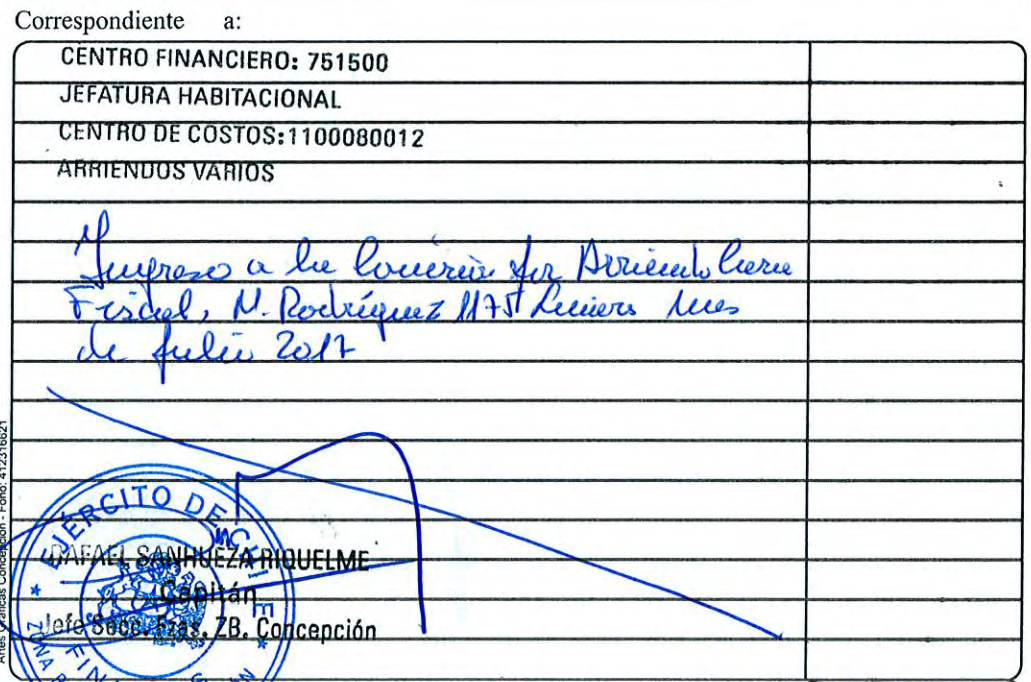 Correspondiente a:
CENTRO FINANCIERO: 751500
JEFATURA HABITACIONAL
CENTRO DE COSTOS:1100080012
ARRIENDOS VARIOS
Ingreso a la Arriendo
Fiscal, M. Rodríguez 1175 mes
de Julio 2017
EJÉRCITO DE CHILE
RAFAEL SANHUEZA RIQUELME
Capitán
Jefe Secc. Fzas. ZB. Concepción
Artes Gráficas Concepción - Fono: 412316621